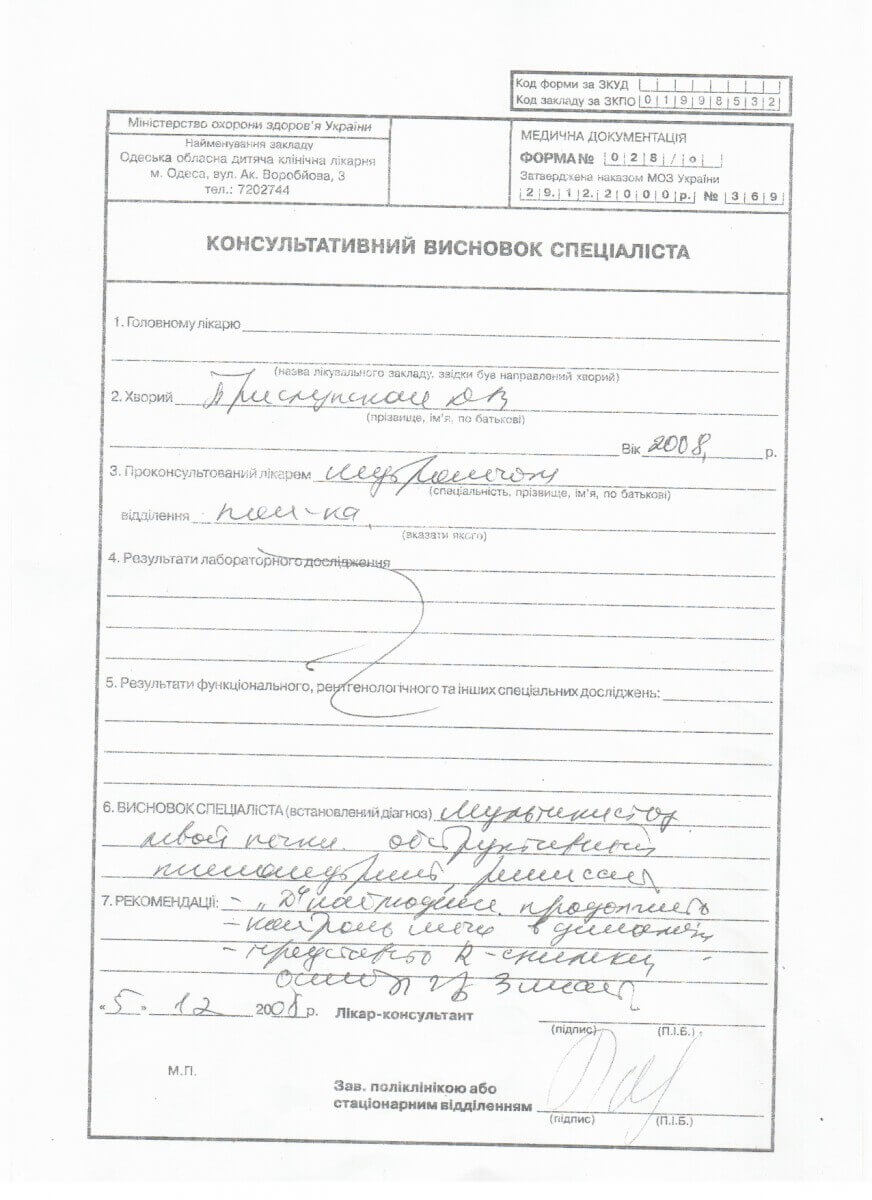 Код форми за ЗКУД
Код закладу за ЗКПО 01998532
Міністерство охорони здоров'я України
Найменування закладу
Одеська обласна дитяча клінічна лікарня
м. Одеса, вул. Ак. Воробйова, 3
тел.: 7202744
МЕДИЧНА ДОКУМЕНТАЦІЯ
ФОРМА № 028/о
Затверджена наказом МОЗ України
29.12.2000р. № 369
КОНСУЛЬТАТИВНИЙ ВИСНОВОК СПЕЦІАЛІСТА
1. Головному лікарю
(назва лікувального закладу, звідки був направлений хворий)
2. Хворий
(прізвище, ім'я, по батькові)
Вік 2008, р.
3. Проконсультований лікарем
(спеціальність, прізвище, ім'я, по батькові)
відділення пол-ка
(вказати якого)
4. Результати лабораторного дослідження
5. Результати функціонального, рентгенологічного та інших спеціальних досліджень:
6. ВИСНОВОК СПЕЦІАЛІСТА (встановлений діагноз) Мультикистоз
левой почки. обструктивный
пиелонефрит,
7. РЕКОМЕНДАЦІЇ: - "Д" наблюдение продолжить
- контроль мочи в динамике
- R-снимки
осмотр
"5" 12 2008 р. Лікар-консультант
(підпис) (П.І.Б.)
М.П.
Зав. поліклінікою або
стаціонарним відділенням
(підпис) (П.І.Б.)